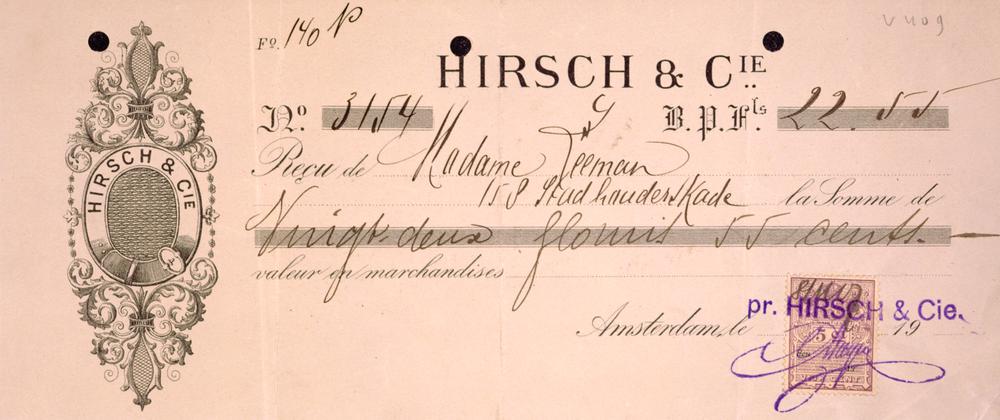 Fº. 140 N
V 409
HIRSCH & CIE
Nº. 3154 B.P.Fls. 22.55
Reçu de Madame Zeeman
158 Stadhouderskade la Somme de
Vingt-deux florins 55 cents.
valeur en marchandises
Amsterdam, le 19
pr. HIRSCH & Cie.
5
HIRSCH & CIE